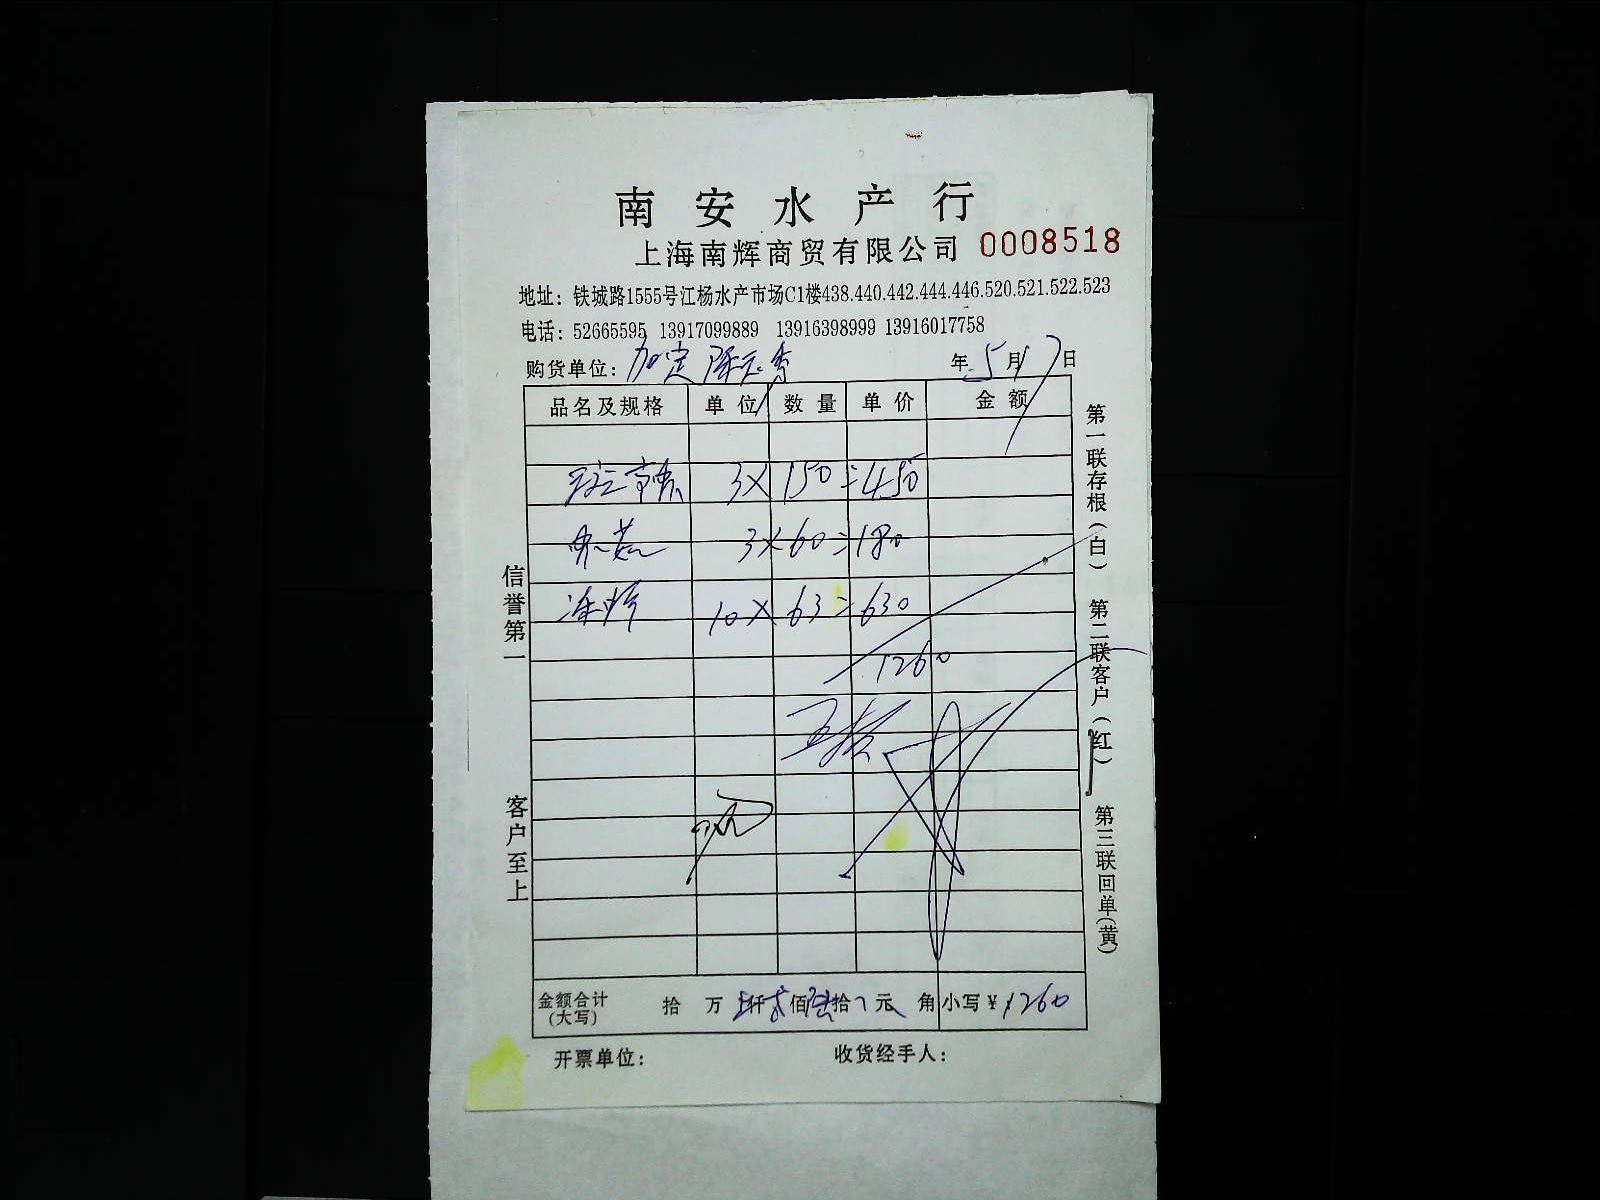 南安水产行
上海南辉商贸有限公司 0008518
地址：铁城路1555号江杨水产市场C1楼438.440.442.444.446.520.521.522.523
电话：52665595 13917099889 13916398999 13916017758
购货单位： 年 5月17日
品名及规格 单位 数量 单价 金额
3×150=450
3×60=180
10×63=630
1260
金额合计(大写) 拾 万 仟 佰 拾 元 角 小写￥1260
开票单位： 收货经手人：
信誉第一 客户至上
第一联存根(白) 第二联客户(红) 第三联回单(黄)